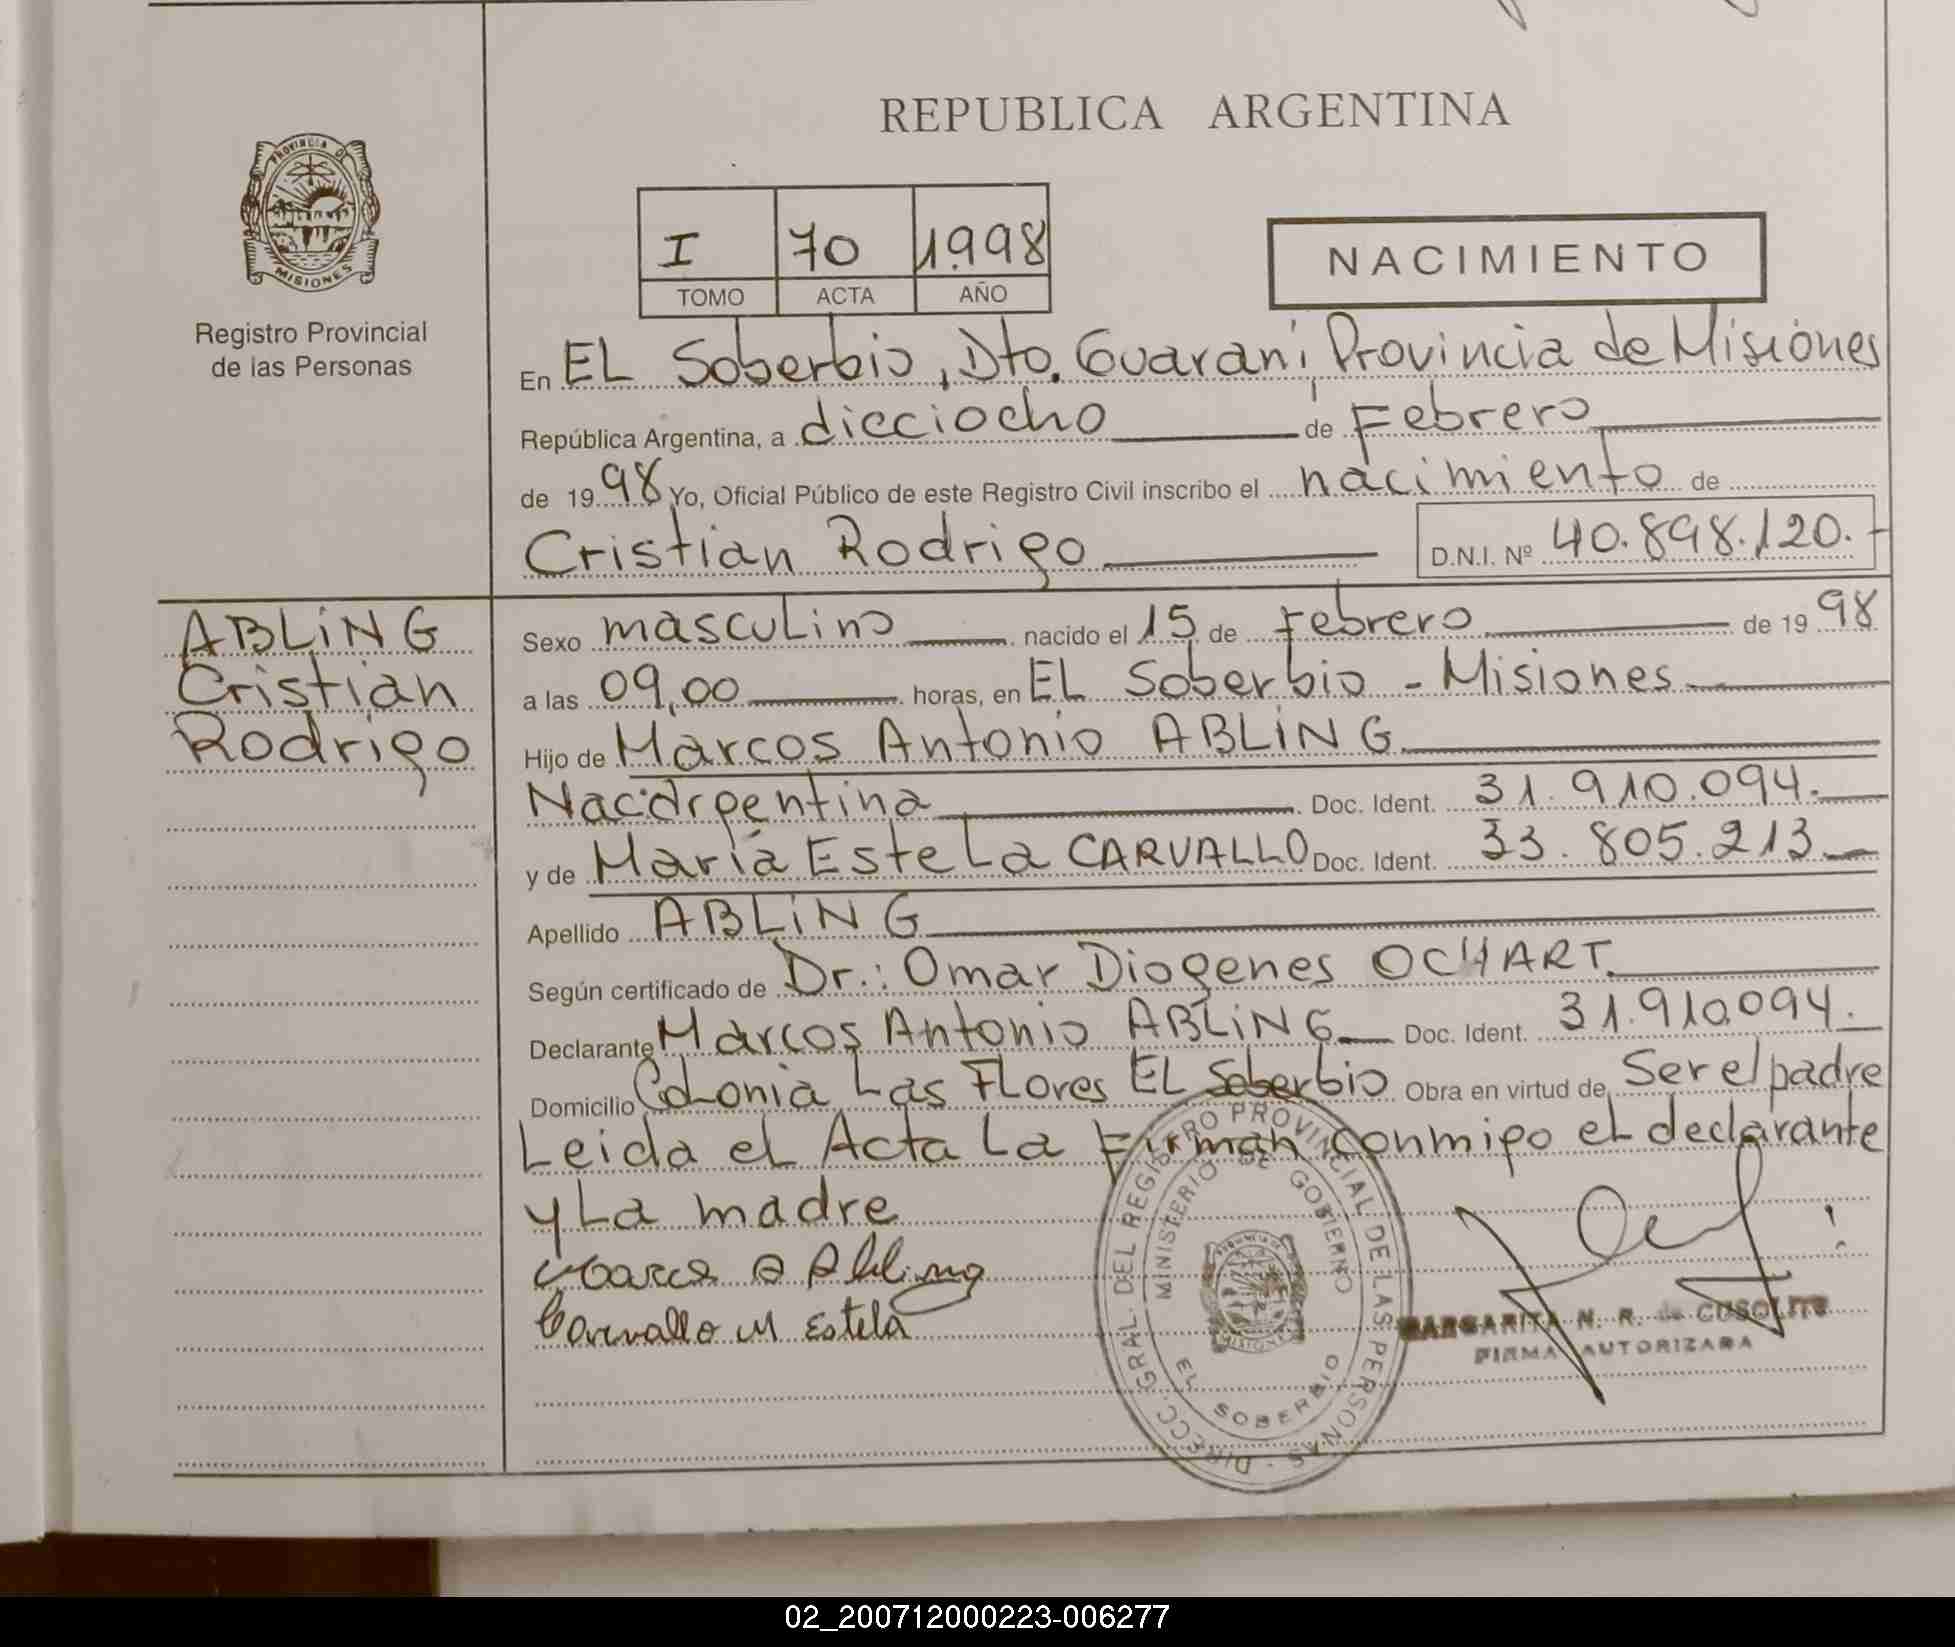 REPUBLICA ARGENTINA
PROVINCIA DE
MISIONES
Registro Provincial
de las Personas
I 70 1.998
TOMO ACTA AÑO
NACIMIENTO
En EL Soberbio, Dto. Guaraní Provincia de Misiones
República Argentina, a diecciocho de Febrero
de 19 98 Yo, Oficial Público de este Registro Civil inscribo el nacimiento de
Cristian Rodrigo D.N.I. Nº 40.898.120.-
ABLiNG
Cristian
Rodrigo
Sexo mascuLino nacido el 15 de Febrero de 19 98
a las 09,00 horas, en EL Soberbio - Misiones
Hijo de Marcos Antonio ABLiNG
Nac:argentina Doc. Ident. 31.910.094.
y de María EsteLa CARVALLO Doc. Ident. 33.805.213
Apellido ABLiNG
Según certificado de Dr.: Omar Diogenes OCHART.
Declarante Marcos Antonio ABLiNG Doc. Ident. 31.910.094.
Domicilio CoLonia Las FLores EL Soberbio Obra en virtud de Ser el padre
Leida eL Acta La Firman conmigo eL declarante
y La madre
Marcos A Abling
Carvallo M Estela
DIRECC. GRAL. DEL REGISTRO PROVINCIAL DE LAS PERSONAS
MINISTERIO DE GOBIERNO
EL SOBERBIO
MARGARITA N. R. de CUSOLITO
FIRMA AUTORIZADA
02_200712000223-006277